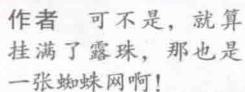 作者　可不是，就算
挂满了露珠，那也是
一张蜘蛛网啊！